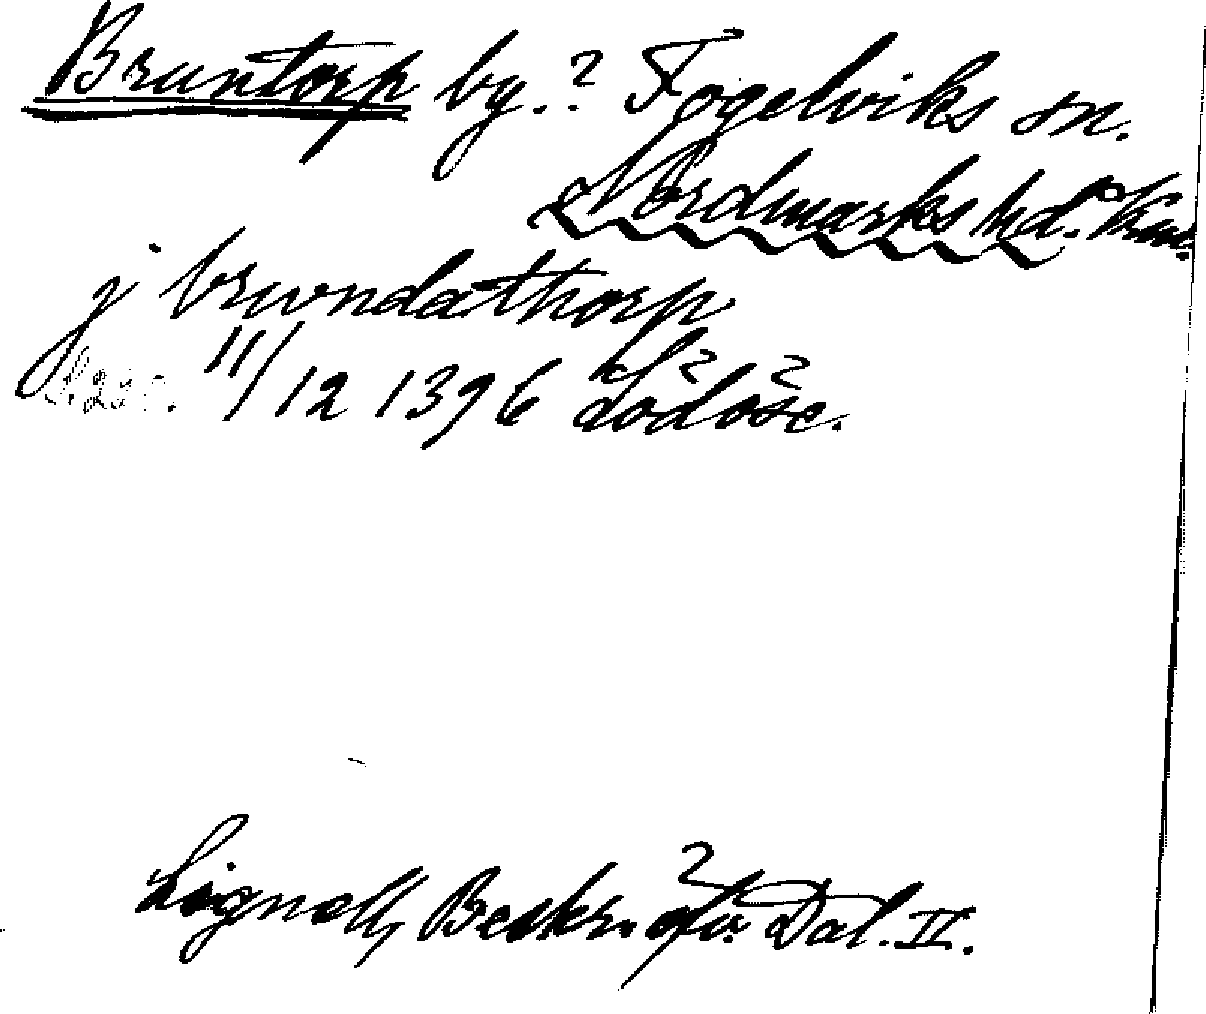 Bruntorp by.? Fögelviks sn.
Nordmarks hd. Vrml.
j brwndathorp
11/12 1396 Lödöse.
Lignell, Beskr. öfv. Dal. II.